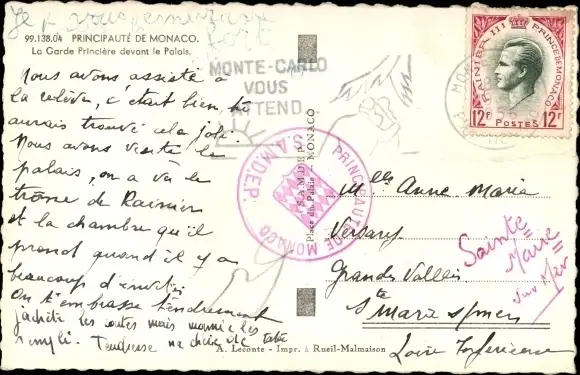 Je vous
fort
99.138.04 PRINCIPAUTÉ DE MONACO.
La Garde Princière devant le Palais.
Nous avons assisté a
la relève, c'était bien, tu
aurais trouvé cela joli.
Nous avons visité le
palais, on a vu le
trône de Rainier
et la chambre qu'il
prend quand il y a
beaucoup d'invités
On t'embrasse tendrement
j'achète les cartes mais mamie les
remplit. Tendresse ma chérie
MONTE-CARLO
VOUS
ATTEND
RAINIER III PRINCE DE MONACO
12F POSTES 12F
PRINCIPAUTÉ DE MONACO
S.A.M.D.E.P.
S.A.M.D.E.P.
Place du Palais - MONACO
Melle Anne Marie
Versary
Grandes Vallées
Ste Marie s/mer
Loire Inférieure
Sainte
Marie
sur Mer
A. Leconte - Impr. à Rueil-Malmaison